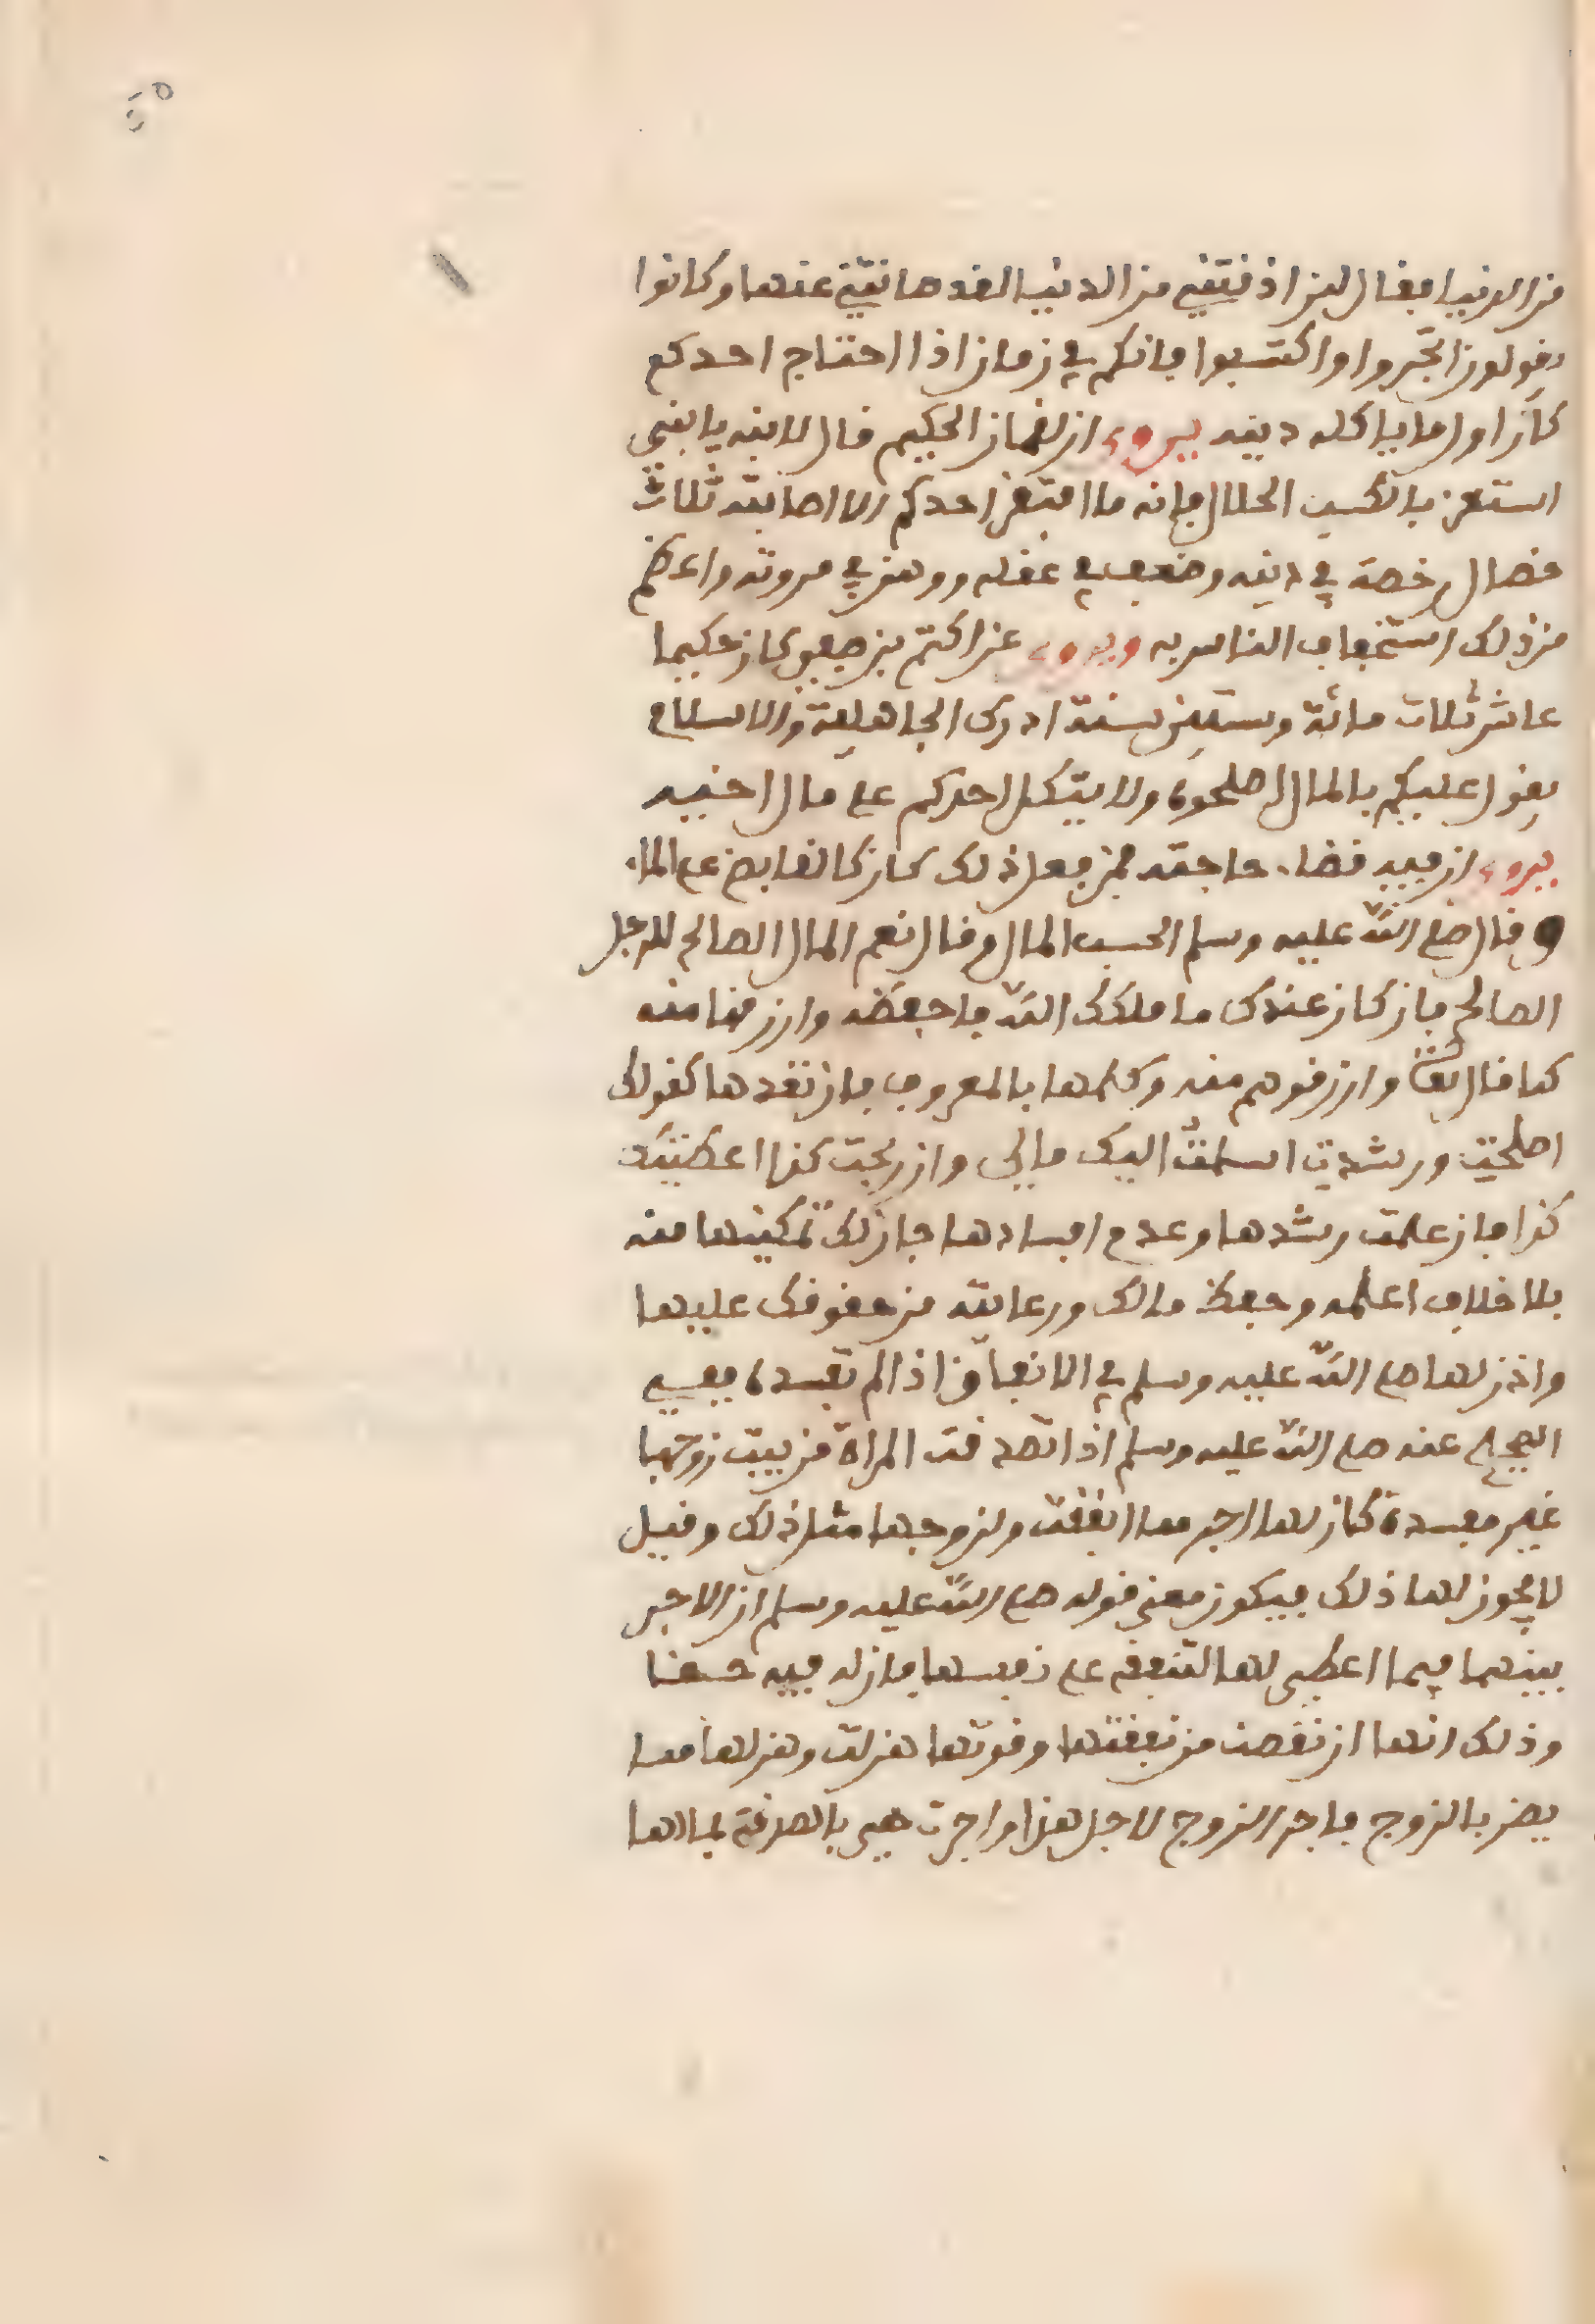 من الدنيا فقال لئن ادنتني من الدنيا لقد صانتني عنها وكانوا
يقولون اتجروا واكتسبوا فانكم في زمان اذا احتاج احدكم
كان اول ما ياكله دينه يروى ان لقمان الحكيم قال لابنه يا بني
استعن بالكسب الحلال فانه ما افتقر احدكم الا اصابته ثلاث
خصال رخصة في دينه وضعف في عقله ووهن في مروته واعظم
من ذلك استخفاف الناس به ويروى عن اكتم بن صيفي كان حكيما
عاش ثلاث مائة وستين سنة ادرك الجاهلية والاسلام
يقول عليكم بالمال اصلحوه ولا يتكل احدكم على مال اخيه
يرى ان فيه قضاء حاجته فمن فعل ذلك كان كالقابض على الماء
وقال صلى الله عليه وسلم الحسب المال وقال نعم المال الصالح للرجل
الصالح فان كان عندك ما ملكك الله فاحفظه وارزقها منه
كما قال تعالى وارزقوهم منه وكلمها بالمعروف فان تفدها كقولك
اصلحت ورشدت اسلمت اليك مالي وان ربحت كذا اعطيتك
كذا فان علمت رشدها وعدم افسادها جاز لك تمكينها منه
بلا خلاف اعلمه وحفظ مالك ورعايته من حقوقك عليها
واذن لها صلى الله عليه وسلم في الانفاق اذا لم تفسده ففي
الصحيح عنه صلى الله عليه وسلم اذا تصدقت المراة من بيت زوجها
غير مفسدة كان لها اجر ما انفقت ولزوجها مثل ذلك وقيل
لا يجوز لها ذلك فيكون معنى قوله صلى الله عليه وسلم ان الاجر
بينهما فيما اعطى لها لتنفقه على نفسها فان له فيه حسنا
وذلك انها ان نقصت من نفقتها وقوتها هزلت وهزلها مما
يضر بالزوج فاجر الزوج لاجل هذا واجرت هي بالصدقة لمالها